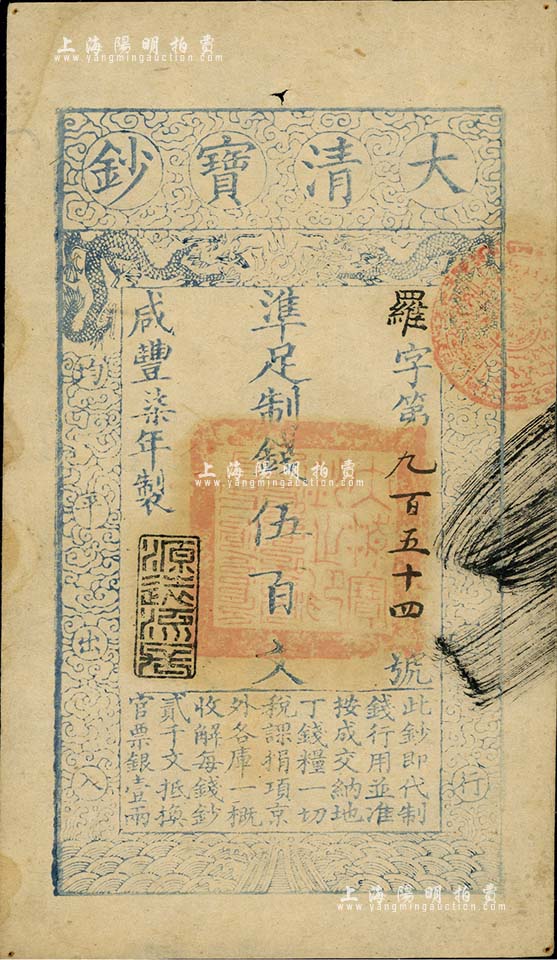 上海陽明拍賣
www.yangmingauction.com
大清寶鈔
羅字第九百五十四號
準足制錢伍百文
咸豐柒年製
均平出入
行
上海陽明拍賣
www.yangmingauction.com
此鈔即代制
錢行用並准
按成交納地
丁錢糧一切
稅課捐項京
外各庫一概
收解每錢鈔
貳千文抵換
官票銀壹兩
上海陽明拍賣
www.yangmingauction.com